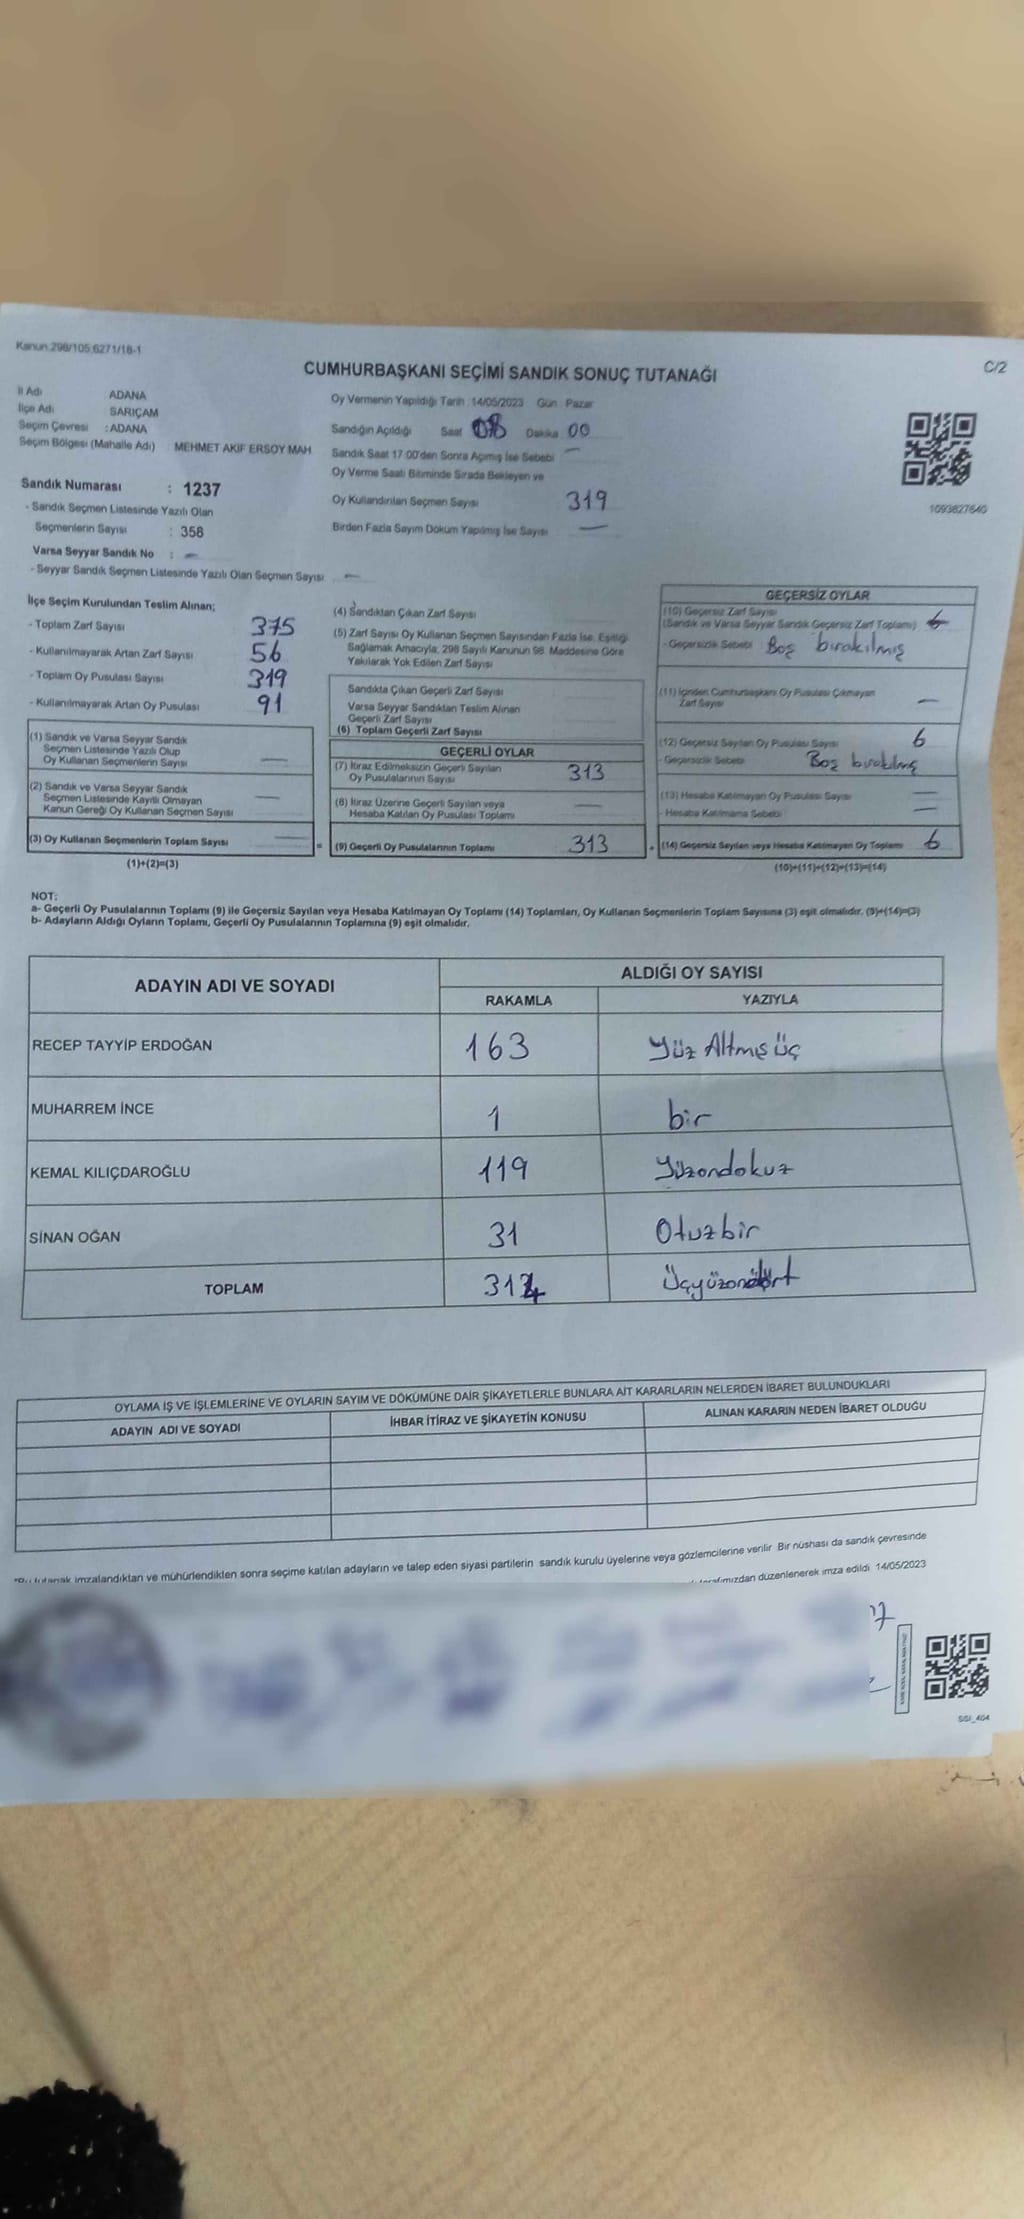 Kanun 298/105 6271/18-1
C/2
CUMHURBAŞKANI SEÇİMİ SANDIK SONUÇ TUTANAĞI
İl Adı ADANA
İlçe Adı SARIÇAM
Seçim Çevresi : ADANA
Seçim Bölgesi (Mahalle Adı) MEHMET AKİF ERSOY MAH
Sandık Numarası : 1237
- Sandık Seçmen Listesinde Yazılı Olan
Seçmenlerin Sayısı : 358
Varsa Seyyar Sandık No : —
- Seyyar Sandık Seçmen Listesinde Yazılı Olan Seçmen Sayısı —
Oy Vermenin Yapıldığı Tarih :14/05/2023 Gün Pazar
Sandığın Açıldığı Saat 08 Dakika 00
Sandık Saat 17:00'den Sonra Açımış İse Sebebi —
Oy Verme Saati Bitiminde Sırada Bekleyen ve
Oy Kullandırılan Seçmen Sayısı 319
Birden Fazla Sayım Döküm Yapılmış İse Sayısı —
1093827640
İlçe Seçim Kurulundan Teslim Alınan;
- Toplam Zarf Sayısı 375
- Kullanılmayarak Artan Zarf Sayısı 56
- Toplam Oy Pusulası Sayısı 319
- Kullanılmayarak Artan Oy Pusulası 91
(1) Sandık ve Varsa Seyyar Sandık
Seçmen Listesinde Yazılı Olup
Oy Kullanan Seçmenlerin Sayısı —
(2) Sandık ve Varsa Seyyar Sandık
Seçmen Listesinde Kayıtlı Olmayan
Kanun Gereği Oy Kullanan Seçmen Sayısı —
(3) Oy Kullanan Seçmenlerin Toplam Sayısı —
(1)+(2)=(3)
(4) Sandıktan Çıkan Zarf Sayısı
(5) Zarf Sayısı Oy Kullanan Seçmen Sayısından Fazla İse, Eşitliği
Sağlamak Amacıyla, 298 Sayılı Kanunun 98. Maddesine Göre
Yakılarak Yok Edilen Zarf Sayısı
Sandıkta Çıkan Geçerli Zarf Sayısı
Varsa Seyyar Sandıktan Teslim Alınan
Geçerli Zarf Sayısı
(6) Toplam Geçerli Zarf Sayısı
GEÇERLİ OYLAR
(7) İtiraz Edilmeksizin Geçerli Sayılan
Oy Pusulalarının Sayısı 313
(8) İtiraz Üzerine Geçerli Sayılan veya
Hesaba Katılan Oy Pusulası Toplamı —
= (9) Geçerli Oy Pusulalarının Toplamı 313
GEÇERSİZ OYLAR
(10) Geçersiz Zarf Sayısı
(Sandık ve Varsa Seyyar Sandık Geçersiz Zarf Toplamı) 6
- Geçersizlik Sebebi Boş bırakılmış
(11) İçinden Cumhurbaşkanı Oy Pusulası Çıkmayan
Zarf Sayısı —
(12) Geçersiz Sayılan Oy Pusulası Sayısı 6
- Geçersizlik Sebebi Boş bırakılmış
(13) Hesaba Katılmayan Oy Pusulası Sayısı —
- Hesaba Katılmama Sebebi —
+ (14) Geçersiz Sayılan veya Hesaba Katılmayan Oy Toplamı 6
(10)+(11)+(12)+(13)=(14)
NOT:
a- Geçerli Oy Pusulalarının Toplamı (9) ile Geçersiz Sayılan veya Hesaba Katılmayan Oy Toplamı (14) Toplamları, Oy Kullanan Seçmenlerin Toplam Sayısına (3) eşit olmalıdır. (9)+(14)=(3)
b- Adayların Aldığı Oyların Toplamı, Geçerli Oy Pusulalarının Toplamına (9) eşit olmalıdır.
ADAYIN ADI VE SOYADI ALDIĞI OY SAYISI
RAKAMLA YAZIYLA
RECEP TAYYİP ERDOĞAN 163 Yüz Altmış üç
MUHARREM İNCE 1 bir
KEMAL KILIÇDAROĞLU 119 Yüzondokuz
SİNAN OĞAN 31 Otuzbir
TOPLAM 314 Üçyüzondört
OYLAMA İŞ VE İŞLEMLERİNE VE OYLARIN SAYIM VE DÖKÜMÜNE DAİR ŞİKAYETLERLE BUNLARA AİT KARARLARIN NELERDEN İBARET BULUNDUKLARI
ADAYIN ADI VE SOYADI İHBAR İTİRAZ VE ŞİKAYETİN KONUSU ALINAN KARARIN NEDEN İBARET OLDUĞU
imzalandıktan ve mühürlendikten sonra seçime katılan adayların ve talep eden siyasi partilerin sandık kurulu üyelerine veya gözlemcilerine verilir Bir nüshası da sandık çevresinde
tarafımızdan düzenlenerek imza edildi 14/05/2023
SSI_404